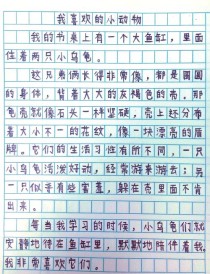 我喜欢的小动物
我的书桌上有一个大鱼缸，里面
住着两只小乌龟。
这兄弟俩长得非常像，都是圆圆
的身体，背着大大的灰褐色的壳。那
龟壳就像石头一样坚硬，壳上还分布
着大小不一的花纹，像一块漂亮的盾
牌。它们的生活习性有所不同，一只
小乌龟活泼好动，经常游来游去；另
一只似乎有些害羞，躲在壳里面不肯
出来。
每当我学习的时候，小乌龟们就
安静地待在鱼缸里，默默地陪伴着我，
我非常喜欢它们。